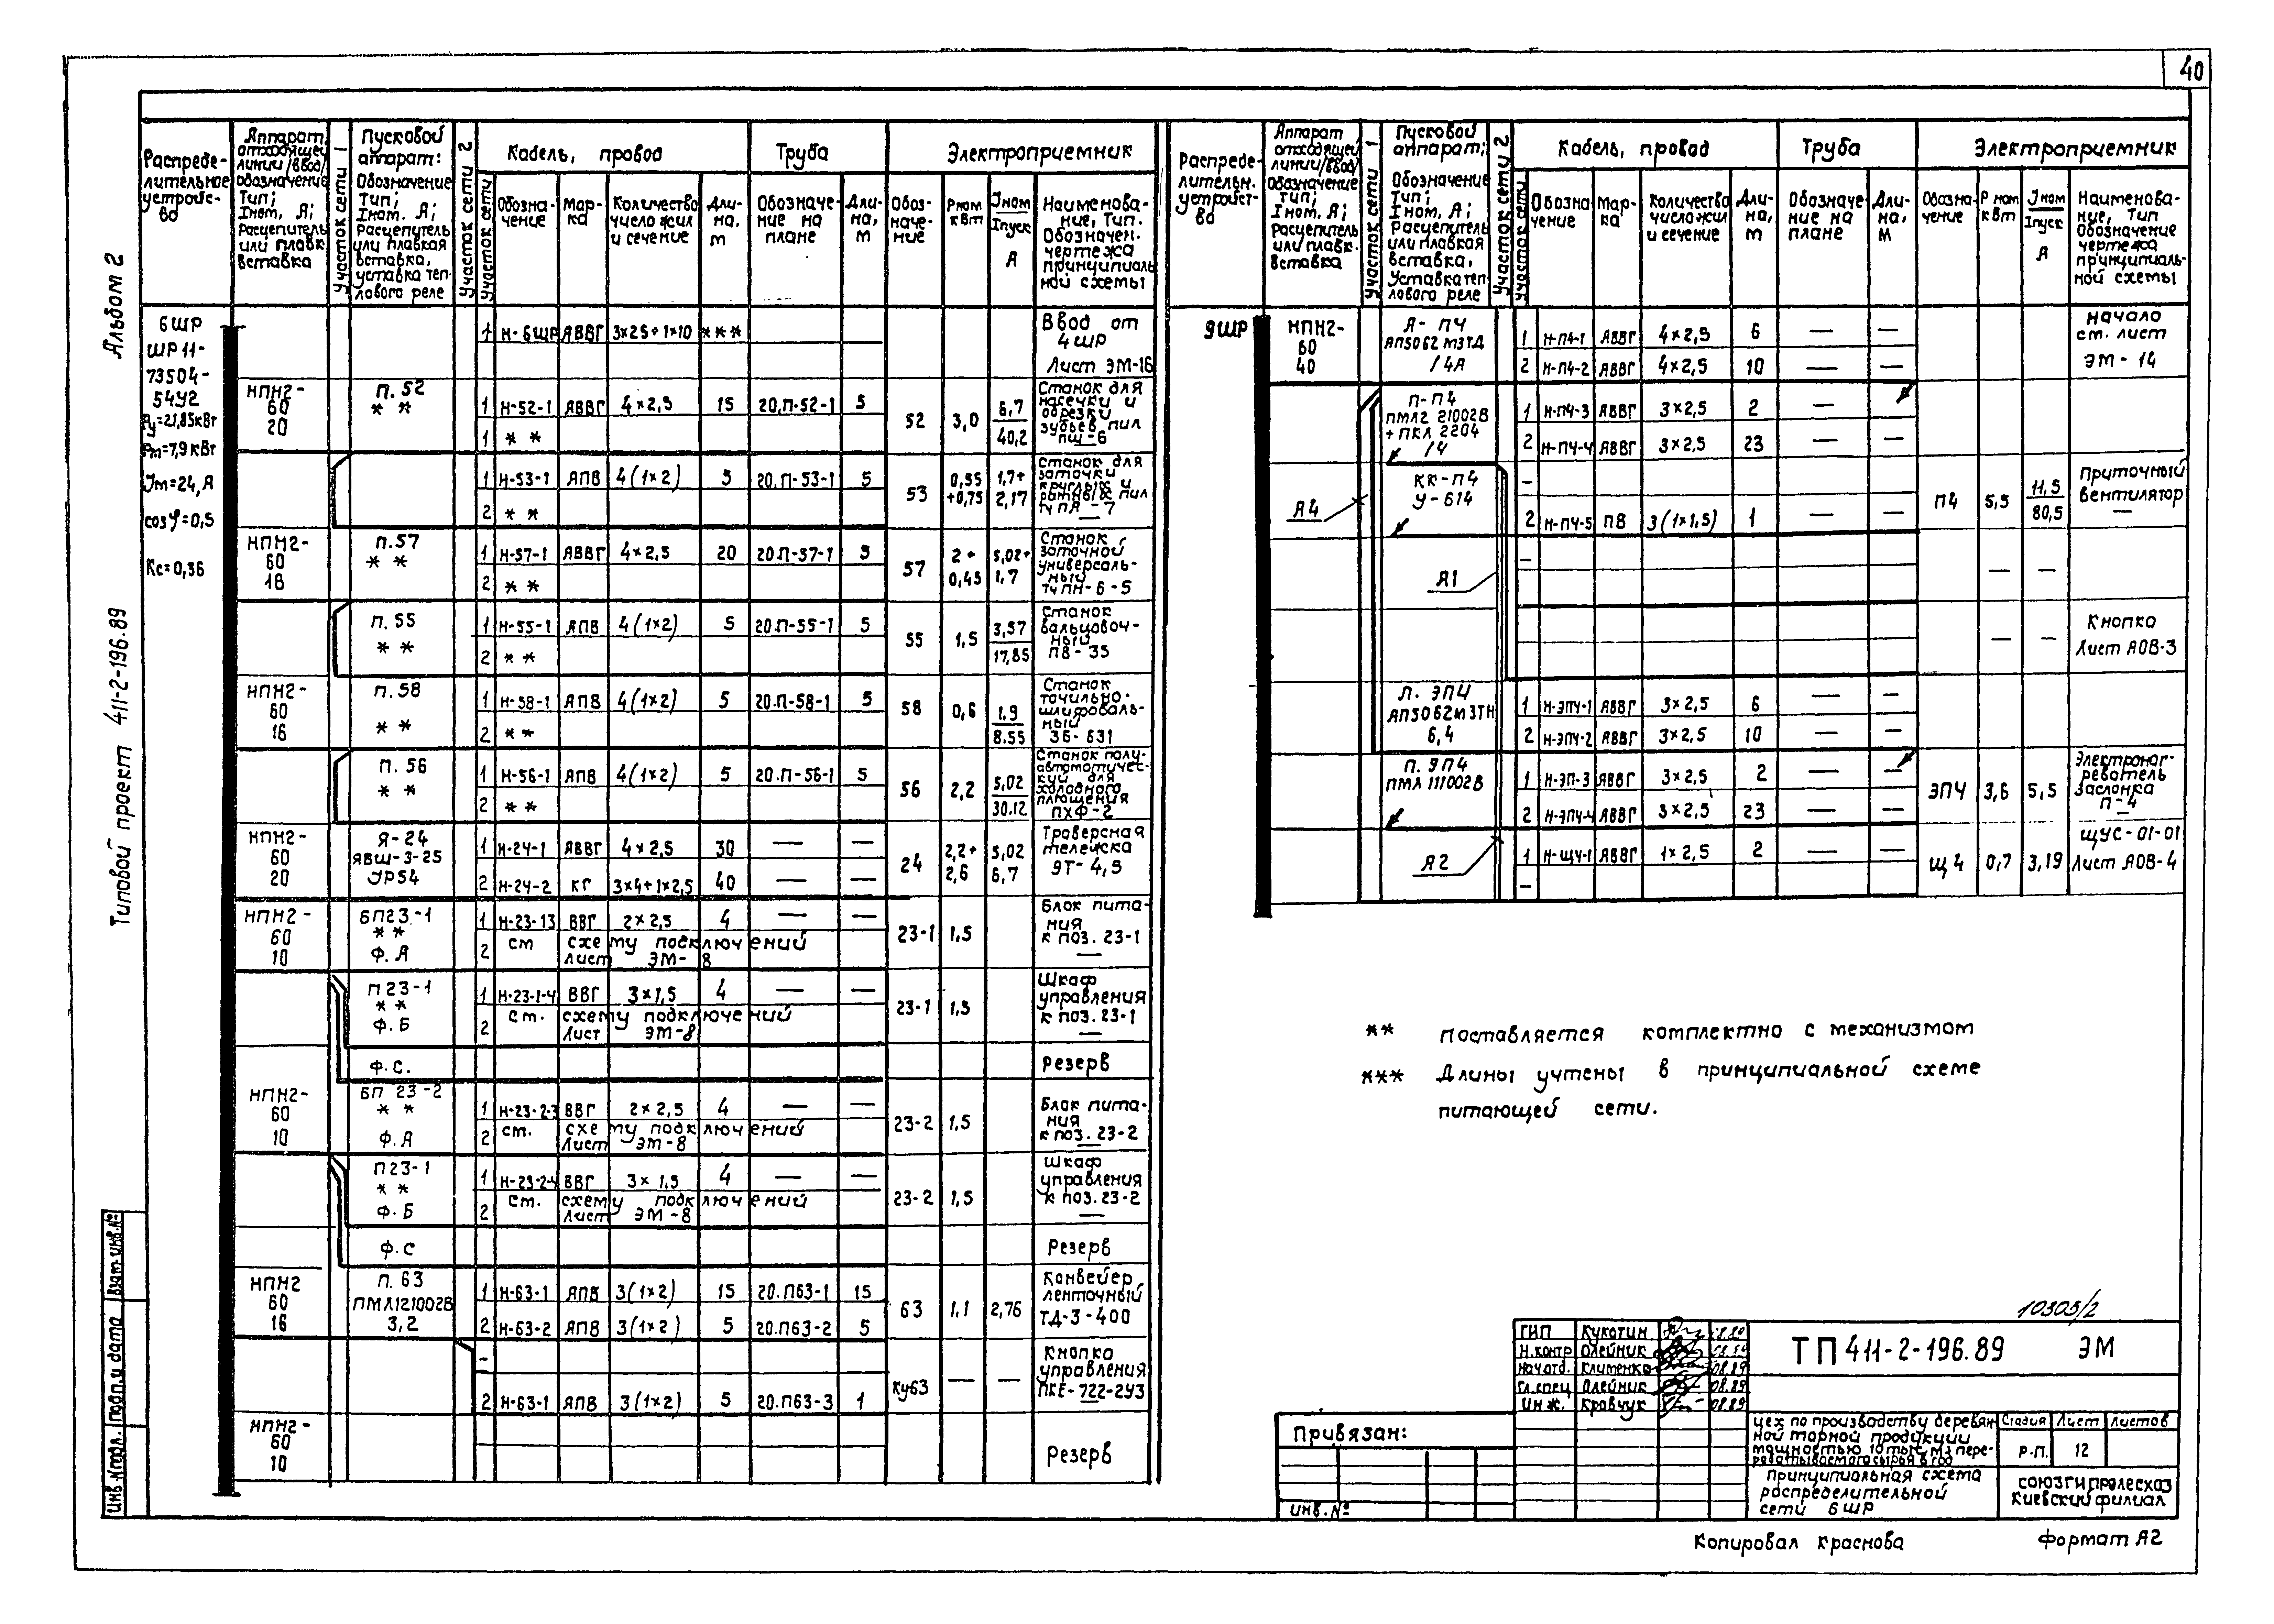 40
Альбом 2
Типовой проект 411-2-196.89
Инв.№подл. Подп.и дата Взам.инв.№
Распреде-
лительное
устройс-
во
Аппарат
отходящей
линии/ввод/
обозначение
Тип;
Iном, А;
Расцепитель
или плавк.
вставка
Участок сети 1
Пусковой
аппарат:
Обозначение
Тип;
Iном. А;
Расцепитель
или плавкая
вставка,
уставка теп-
лового реле
Участок сети 2
Участок сети
Кабель, провод
Обозна-
чение
Мар-
ка
Количество
число жил
и сечение
Дли-
на,
м
Труба
Обозначе-
ние на
плане
Дли-
на,
м
Электроприемник
Обоз-
наче-
ние
Рном
кВт
Iном
Iпуск
А
Наименова-
ние, Тип.
Обозначен.
чертежа
принципиаль
ной схемы
6ШР
ШР11-
73504-
54У2
Ру=21,85кВт
Рм=7,9кВт
Jм=24,А
cosφ=0,5
Кс=0,36
1 Н-6ШР АВВГ 3×25+1×10 ***
Ввод от
4ШР
Лист ЭМ-16
НПН2-
60
20
П.52
* *
1 Н-52-1 АВВГ 4×2,5 15 20.П-52-1 5
1 * *
52 3,0 6,7
40,2
Станок для
насечки и
обрезки
зубьев пил
ПШ-6
1 Н-53-1 АПВ 4(1×2) 5 20.П-53-1 5
2 * *
53 0,55
+0,75
1,7+
2,17
Станок для
заточки
круглых и
рамных пил
ТчПА-7
НПН2-
60
16
П.57
* *
1 Н-57-1 АВВГ 4×2,5 20 20.П-57-1 5
2 * *
57 2+
0,45
5,02+
1,7
Станок
заточной
универсаль-
ный
ТчПН-6-5
П.55
* *
1 Н-55-1 АПВ 4(1×2) 5 20.П-55-1 5
2 * *
55 1,5 3,57
17,85
Станок
вальцовоч-
ный
ПВ-35
НПН2-
60
16
П.58
* *
1 Н-58-1 АПВ 4(1×2) 5 20.П-58-1 5
2 * *
58 0,6 1.9
8.55
Станок
точильно-
шлифоваль-
ный
3Б-631
П.56
* *
1 Н-56-1 АПВ 4(1×2) 5 20.П-56-1 5
2 * *
56 2,2 5,02
30.12
Станок полу-
автоматичес-
кий для
холодного
плющения
ПХФ-2
НПН2-
60
20
Я-24
ЯВШ-3-25
JP54
1 Н-24-1 АВВГ 4×2,5 30 — —
2 Н-24-2 КГ 3×4+1×2,5 40 — —
24 2,2+
2,6
5,02
6,7
Траверсная
тележка
ЭТ-4,5
НПН2-
60
10
БП23-1
* *
Ф.А
1 Н-23-13 ВВГ 2×2,5 4 — —
2 см схему подключений
Лист ЭМ-8
23-1 1,5
Блок пита-
ния
к поз. 23-1
—
П23-1
* *
Ф.Б
1 Н-23-1-4 ВВГ 3×1,5 4 — —
2 см. схему подключений
Лист ЭМ-8
23-1 1,5
Шкаф
управления
к поз. 23-1
—
Ф.С.
Резерв
НПН2-
60
10
БП 23-2
* *
Ф.А
1 Н-23-2-3 ВВГ 2×2,5 4 — —
2 см. схему подключений
Лист ЭМ-8
23-2 1,5
Блок пита-
ния
к поз. 23-2
—
П23-1
* *
Ф.Б
1 Н-23-2-4 ВВГ 3×1,5 4 — —
2 см. схему подключений
Лист ЭМ-8
23-2 1,5
Шкаф
управления
к поз.23-2
—
Ф.С
Резерв
НПН2
60
16
П.63
ПМЛ121002В
3,2
1 Н-63-1 АПВ 3(1×2) 15 20.П63-1 15
2 Н-63-2 АПВ 3(1×2) 5 20.П63-2 5
63 1.1 2,76
Конвейер
ленточный
ТД-3-400
-
2 Н-63-1 АПВ 3(1×2) 5 20.П63-3 1
Ку63 — —
Кнопка
управления
ПКЕ-722-2У3
НПН2-
60
10
Резерв
Распреде-
лительн.
устройст-
во
Аппарат
отходящей
линии/ввод/
Обозначение
Тип;
Iном, А;
Расцепитель
или плавк.
вставка
Участок сети 1
Пусковой
аппарат;
Обозначение
Тип;
Iном, А;
Расцепитель
или плавкая
вставка,
Уставка теп-
лового реле
Участок сети 2
Участок сети
Кабель, провод
Обозна-
чение
Мар-
ка
Количество
число жил
и сечение
Дли-
на,
м
Труба
Обозначе-
ние на
плане
Дли-
на,
м
Электроприемник
Обозна-
чение
Р ном
кВт
Jном
Iпуск
А
Наименова-
ние, Тип
Обозначение
чертежа
принципиаль-
ной схемы
9ШР
НПН2-
60
40
Я-П4
АП5062М3ТД
/4А
1 Н-П4-1 АВВГ 4×2,5 6 — —
2 Н-П4-2 АВВГ 4×2,5 10 — —
начало
см. лист
ЭМ-14
П-П4
ПМЛ2 21002В
+ПКЛ 2204
/4
1 Н-П4-3 АВВГ 3×2,5 2 — —
2 Н-П4-4 АВВГ 3×2,5 23 — —
А4
КК-П4
У-614
-
2 Н-П4-5 ПВ 3(1×1,5) 1
П4 5,5 11,5
80,5
Приточный
вентилятор
—
А1
-
— —
— —
Кнопка
Лист АОВ-3
Л. ЭП4
АП5062М3ТН
6,4
1 Н-ЭП4-1 АВВГ 3×2,5 6 — —
2 Н-ЭП4-2 АВВГ 3×2,5 10 — —
П. ЭП4
ПМЛ 111002В
1 Н-ЭП-3 АВВГ 3×2,5 2 — —
2 Н-ЭП4-4 АВВГ 3×2,5 23 — —
ЭП4 3,6 5,5
Электронаг-
реватель
Заслонка
П-4
—
А2
1 Н-Щ4-1 АВВГ 1×2,5 2 — —
-
Щ4 0,7 3,19
ЩУС-01-01
Лист АОВ-4
** Поставляется комплектно с механизмом
*** Длины учтены в принципиальной схеме
питающей сети.
10305/2
ГИП Кукотин
Н.контр Олейник
Нач.отд. Клименко 08.89
Гл.спец Олейник 08.89
Инж. Кравчук 08.89
ТП 411-2-196.89 ЭМ
Цех по производству деревян
ной тарной продукции
мощностью 10 тыс. м3 пере-
рабатываемого сырья в год
Стадия Лист Листов
Р.П. 12
Принципиальная схема
распределительной
сети 6ШР
СОЮЗГИПРОЛЕСХОЗ
Киевский филиал
Привязан:
Инв.№
Копировал Краснова
Формат А2